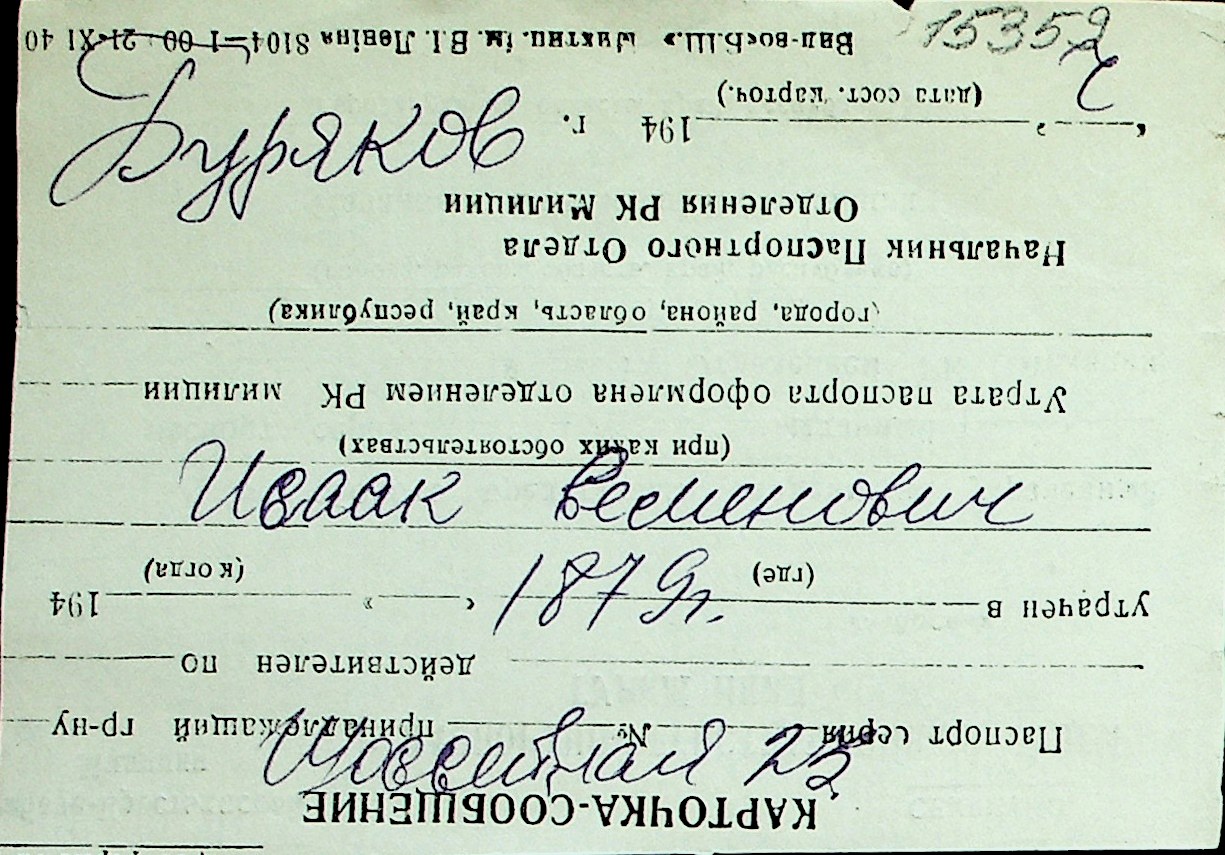 15352
Вид-во«Б.Ш.» ім. В.І. Леніна 8104—1 00 21-XI 40
(дата сост. карточ.)
" " 194 г.
Буряков
Отделения РК Милиции
Начальник Паспортного Отдела
(города, района, область, край, республика)
Утрата паспорта оформлена отделением РК милиции
(при каких обстоятельствах)
Исаак Семенович
(где) (когда)
утрачен в " " 194
1879г.
действителен по
Паспорт серия № принадлежащий гр-ну
Шоссейная 25
КАРТОЧКА-СООБЩЕНИЕ